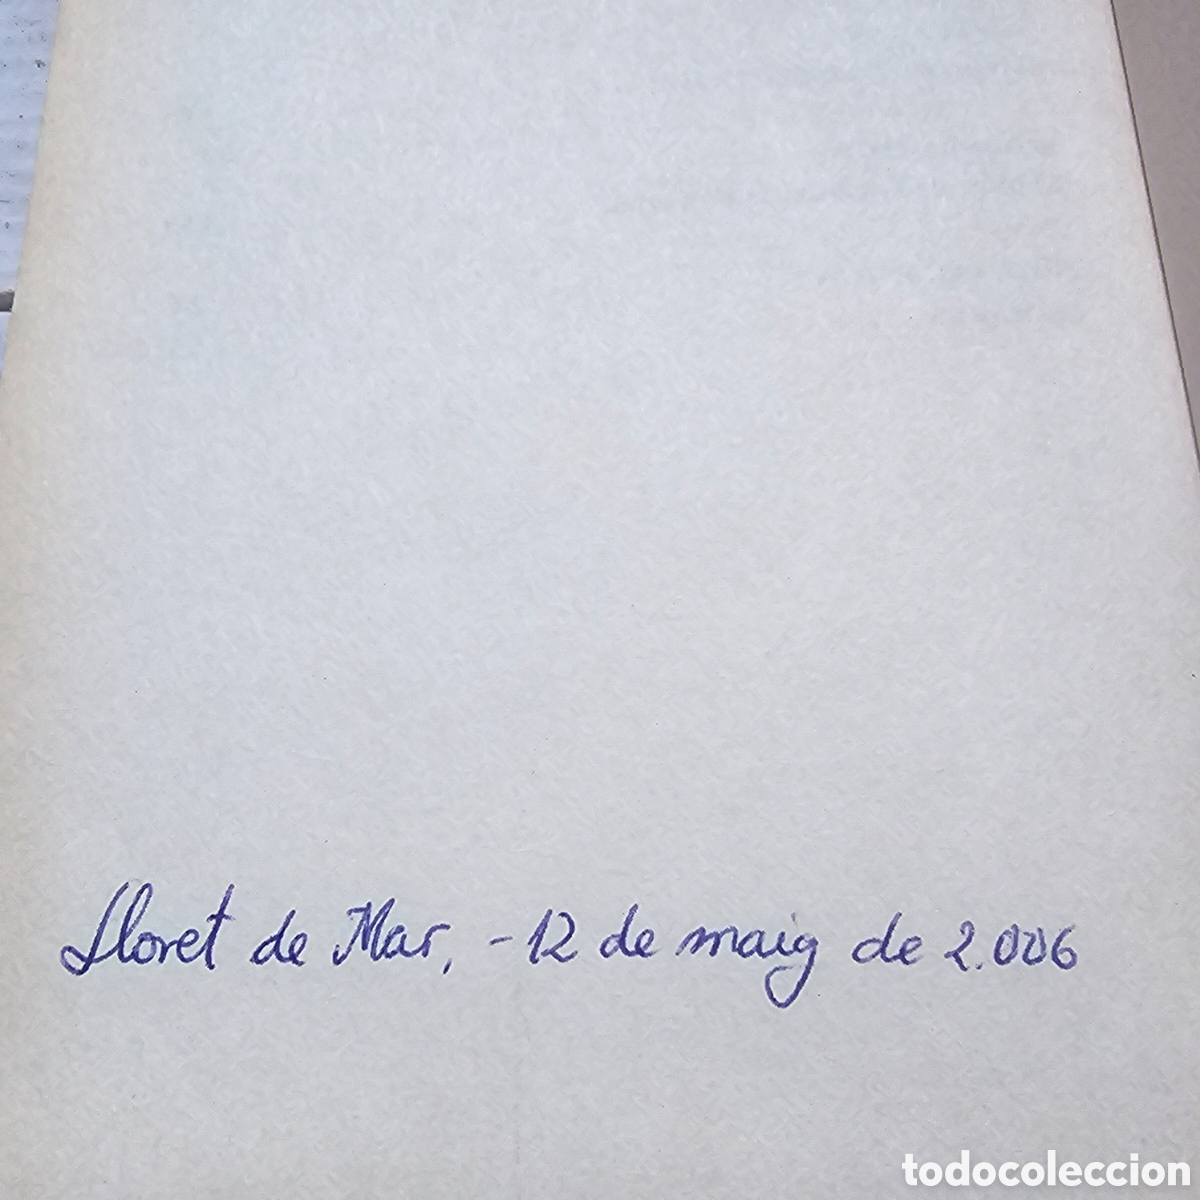 Lloret de Mar, - 12 de maig de 2.006
todocoleccion